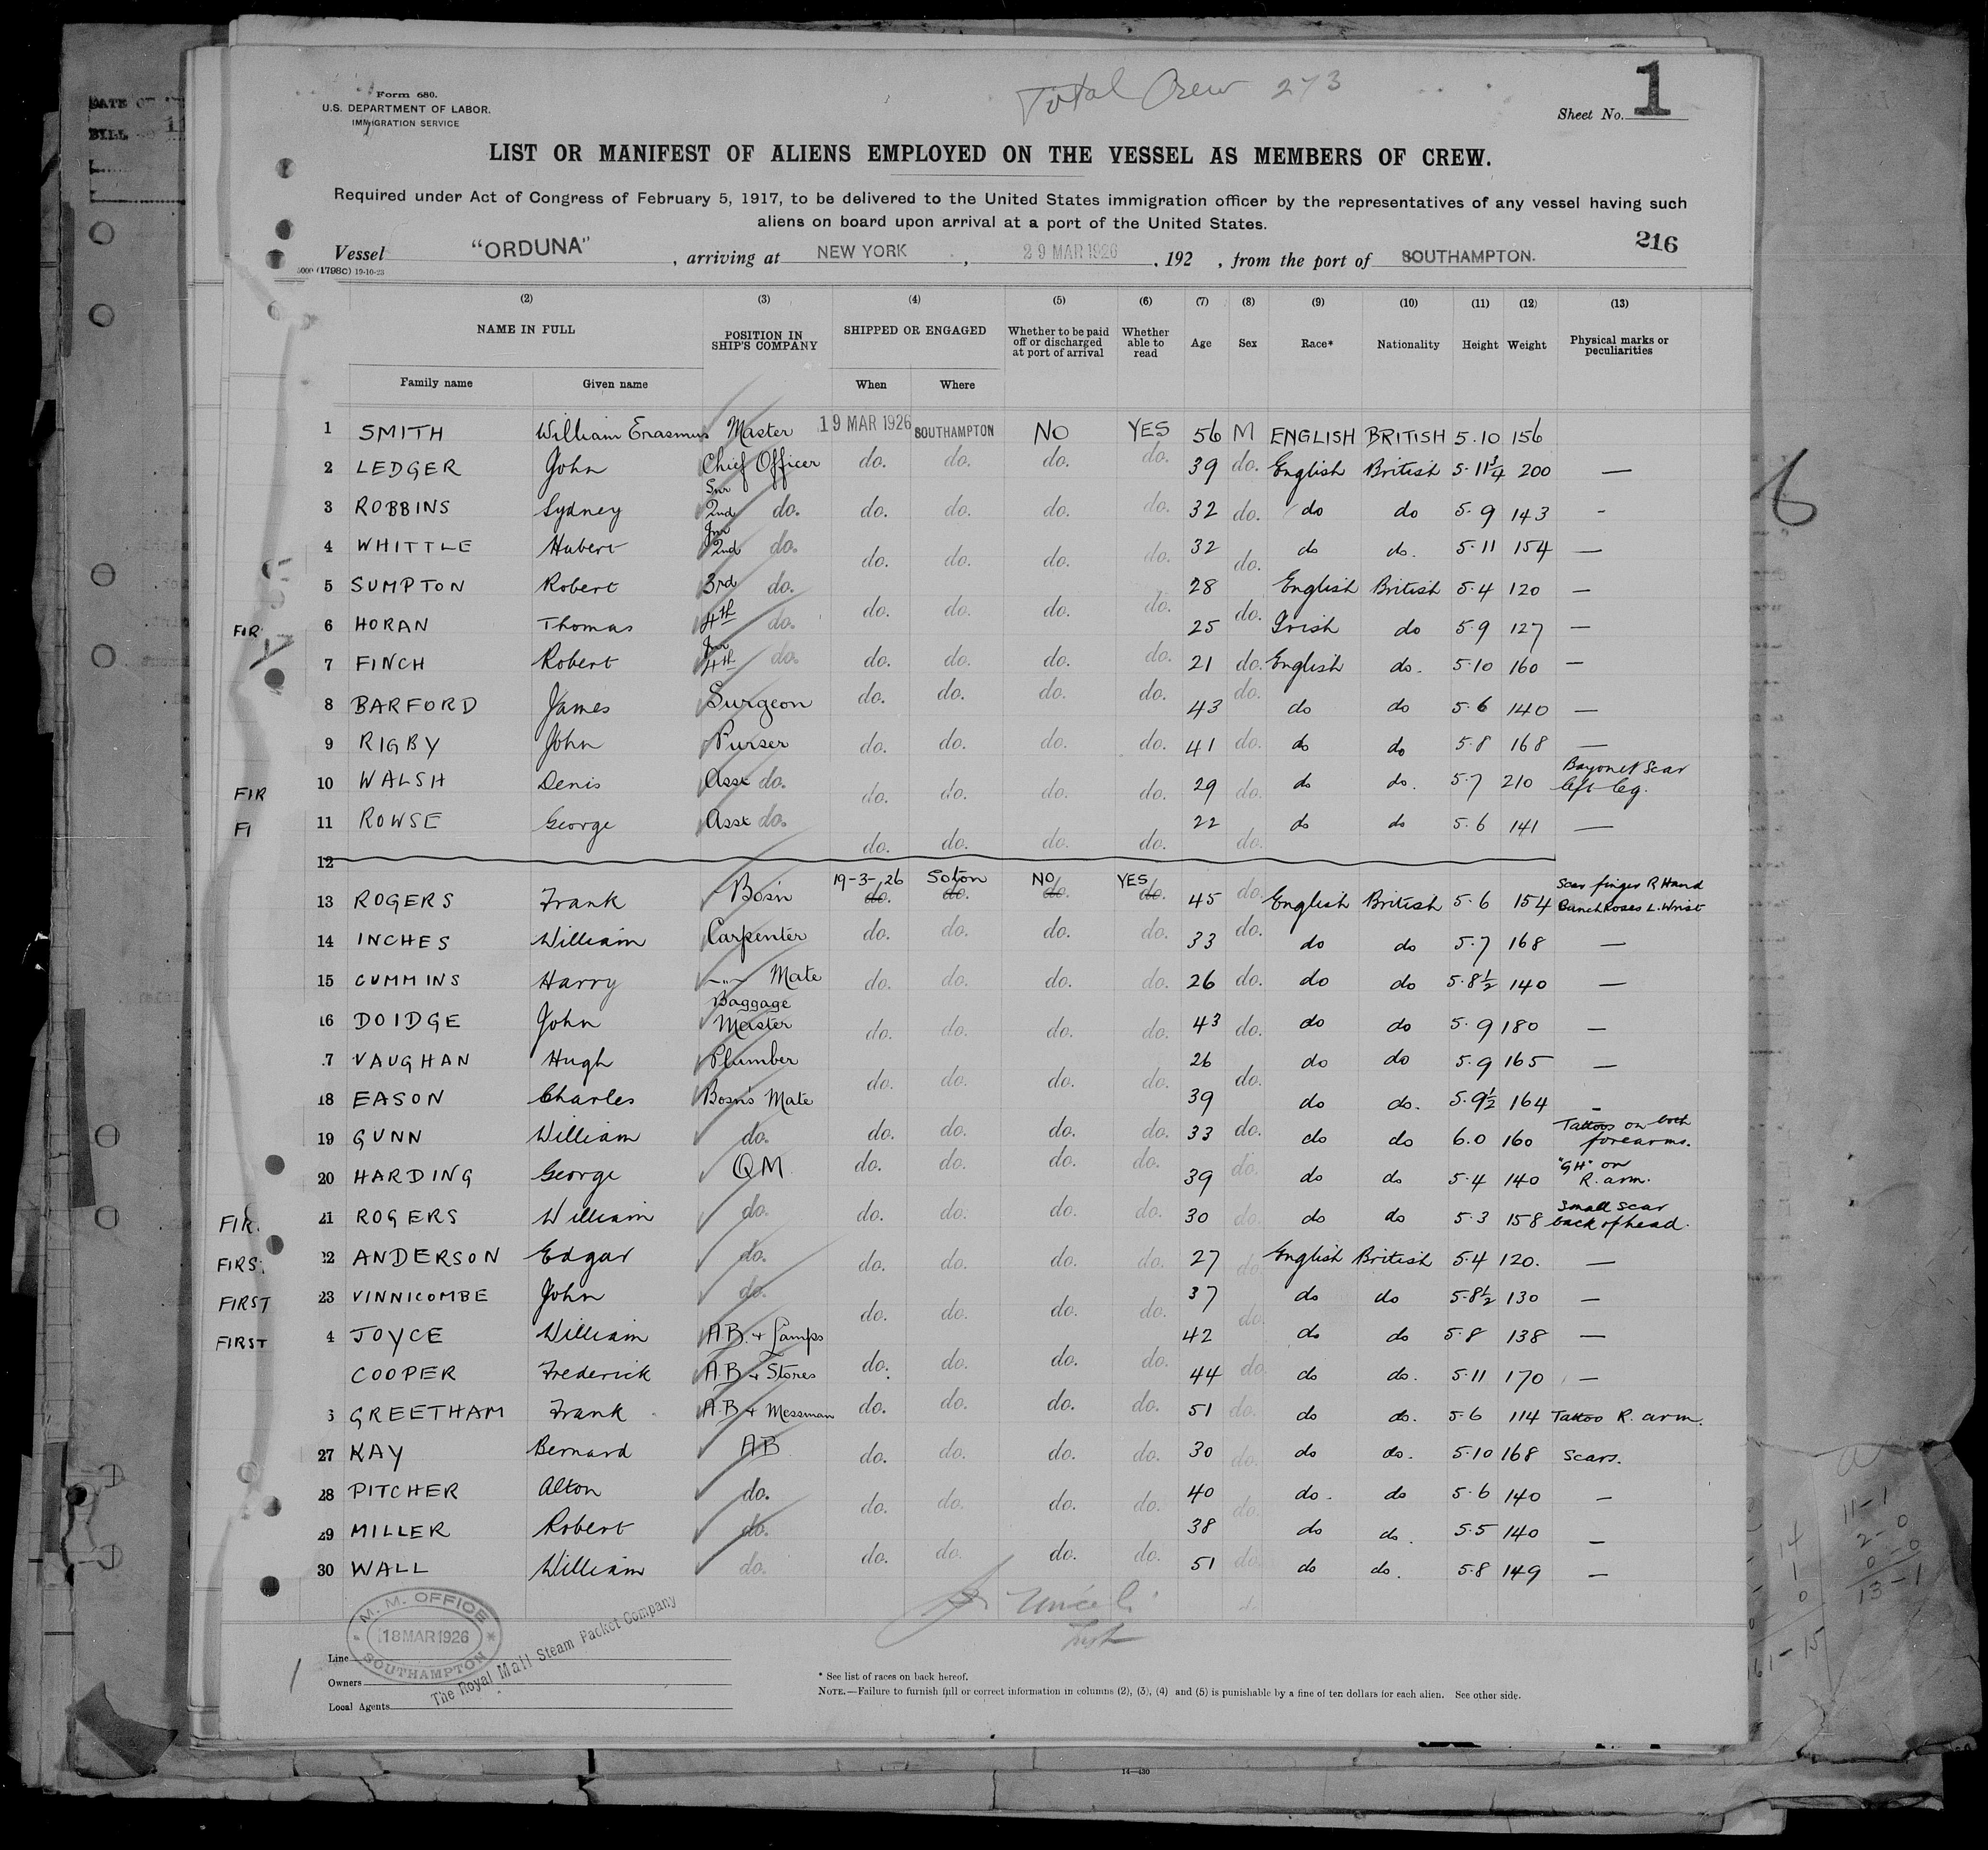 Total Crew 273
Form 680.
U.S. DEPARTMENT OF LABOR.
IMMIGRATION SERVICE
Sheet No. 1
LIST OR MANIFEST OF ALIENS EMPLOYED ON THE VESSEL AS MEMBERS OF CREW.
Required under Act of Congress of February 5, 1917, to be delivered to the United States immigration officer by the representatives of any vessel having such
aliens on board upon arrival at a port of the United States.
216
Vessel "ORDUNA", arriving at NEW YORK, 29 MAR 1926, 192 , from the port of SOUTHAMPTON.
5000 (1798C) 19-10-23
(2) (3) (4) (5) (6) (7) (8) (9) (10) (11) (12) (13)
NAME IN FULL POSITION IN SHIP'S COMPANY SHIPPED OR ENGAGED Whether to be paid off or discharged at port of arrival Whether able to read Age Sex Race* Nationality Height Weight Physical marks or peculiarities
Family name Given name When Where
1 SMITH William Erasmus Master 19 MAR 1926 SOUTHAMPTON NO YES 56 M ENGLISH BRITISH 5.10 156
2 LEDGER John Chief Officer do. do. do. do. 39 do. English British 5.11¾ 200 —
3 ROBBINS Sydney Snr 2nd do. do. do. do. do. 32 do. do do 5.9 143 -
4 WHITTLE Hubert Jnr 2nd do. do. do. do. do. 32 do. do do. 5.11 154 —
5 SUMPTON Robert 3rd do. 28 English British 5.4 120 —
FIR 6 HORAN Thomas 4th do. do. do. do. do. 25 do. Irish do 5.9 127 —
7 FINCH Robert Jnr 4th do. do. do. do. do. 21 do. English do. 5.10 160 —
8 BARFORD James Surgeon do. do. do. do. 43 do. do do 5.6 140 —
9 RIGBY John Purser do. do. do. do. 41 do. do do 5.8 168 —
FIR 10 WALSH Denis Asst do. do. do. do. do. 29 do. do do. 5.7 210 Bayonet Scar left leg.
FI 11 ROWSE George Asst do. do. do. do. do. 22 do. do do 5.6 141 —
12
13 ROGERS Frank Bosn 19-3-26 do. Soton do. NO do. YES do. 45 do. English British 5.6 154 Scar finger R Hand Bunch Roses L. Wrist
14 INCHES William Carpenter do. do. do. do. 33 do. do do 5.7 168 —
15 CUMMINS Harry —"— Mate do. do. do. do. 26 do. do do 5.8½ 140 —
16 DOIDGE John Baggage Master do. do. do. do. 43 do. do do 5.9 180 —
7 VAUGHAN Hugh Plumber do. do. do. do. 26 do. do do 5.9 165 —
18 EASON Charles Bosn's Mate 39 do do. 5.9½ 164 —
19 GUNN William do. do. do. do. do. 33 do. do do 6.0 160 Tattoos on both forearms.
20 HARDING George QM do. do. do. do. 39 do. do do 5.4 140 "GH" on R. arm.
FIR. 21 ROGERS William do. do. do. do. do. 30 do. do do 5.3 158 Small scar back of head.
FIRS 22 ANDERSON Edgar do. do. do. do. do. 27 do English British 5.4 120. —
FIRST 23 VINNICOMBE John do. do. do. do. do. 37 do. do do 5.8½ 130 —
FIRST 4 JOYCE William AB. + Lamps 42 do do 5.8 138 —
COOPER Frederick A.B + Stores do. do. do. do. 44 do. do do. 5.11 170 —
GREETHAM Frank AB + Messman do. do. do. do. 51 do. do do. 5.6 114 Tattoo R. arm.
27 KAY Bernard AB do. do. do. do. 30 do. do do. 5.10 168 Scars.
28 PITCHER Alton do. do. do. do. do. 40 do. do. do 5.6 140 —
29 MILLER Robert do. 38 do do. 5.5 140 —
30 WALL William do. do. do. do. do. 51 do. do do. 5.8 149 —
M. M. OFFICE
18 MAR 1926
SOUTHAMPTON
The Royal Mail Steam Packet Company
Line
Owners
Local Agents
* See list of races on back hereof.
NOTE.—Failure to furnish full or correct information in columns (2), (3), (4) and (5) is punishable by a fine of ten dollars for each alien. See other side.
14—430